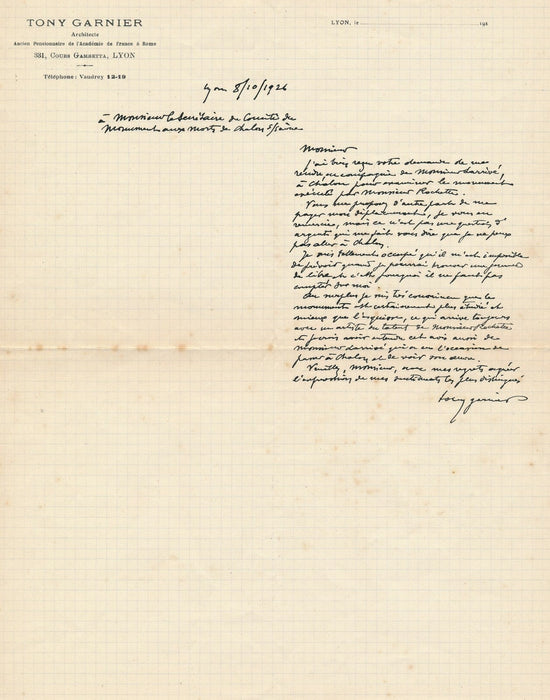 TONY GARNIER
Architecte
Ancien Pensionnaire de l'Académie de France à Rome
331, COURS GAMBETTA, LYON
Téléphone: Vaudrey 12-19
LYON, le 191
Lyon 8/10/1926
à Monsieur le Secrétaire du Comité du
Monument aux morts de Chalon s/saône
Monsieur
J'ai bien reçu votre demande de me
rendre en compagnie de Monsieur Larrivé,
à Chalon pour examiner le monument
exécuté par Monsieur Rochette.
Vous me proposez d'autre part de me
payer mon déplacement, je vous en
remercie, mais ce n'est pas une question d'
argent qui me fait vous dire que je ne peux
pas aller à Chalon.
Je suis tellement occupé qu'il m'est impossible
de prévoir quand je pourrai trouver un moment
de liberté et c'est pourquoi il ne faut pas
compter sur moi.
Au surplus je suis très convaincu que le
monument est certainement plus étudié et
mieux que l'esquisse, ce qui arrive toujours
avec un artiste du talent de Monsieur Rochette
et je crois avoir entendu cet avis aussi de
Monsieur Larrivé qui a eu l'occasion de
passer à Chalon et de voir son œuvre.
Veuillez, Monsieur, avec mes regrets agréer
l'expression de mes sentiments les plus distingués
tony garnier